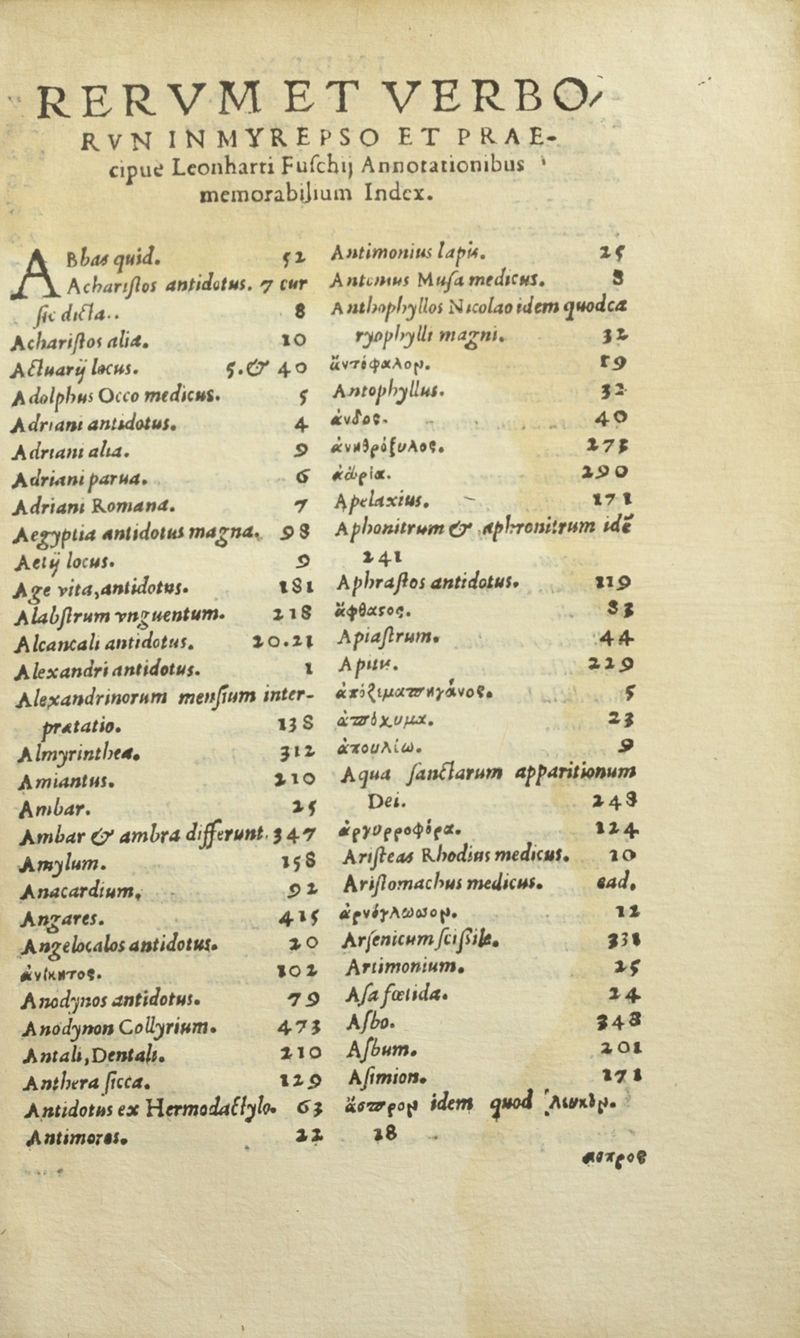 RERVM ET VERBO/
RVN IN MYREPSO ET PRAE-
cipuè Leonharti Fuſchij Annotationibus
memorabilium Index.
ABbas quid. 52
Achariſtos antidotus. 7 cur
ſic dicta.. 8
Achariſtos alia. 10
Actuarij locus. 5.& 40
Adolphus Occo medicus. 5
Adriani antidotus. 4
Adriani alia. 9
Adriani parua. 6
Adriani Romana. 7
Aegyptia antidotus magna. 98
Aetij locus. 9
Age vita,antidotus. 181
Alabſtrum vnguentum. 218
Alcancali antidotus. 20.21
Alexandri antidotus. 1
Alexandrinorum menſium inter-
prætatio. 138
Almyrinthea. 312
Amiantus. 210
Ambar. 25
Ambar & ambra differunt. 347
Amylum. 158
Anacardium, 92
Angares. 415
Angelocalos antidotus. 20
ἀνίκητος. 102
Anodynos antidotus. 79
Anodynon Collyrium. 473
Antali,Dentali. 210
Anthera ſicca. 129
Antidotus ex Hermodactylo. 63
Antimoros. 22
Antimonius lapis. 25
Antonius Muſa medicus. 8
Anthophyllos Nicolao idem quod ca
ryophylli magni. 32
ἄντέφαλορ. 19
Antophyllus. 32
ἄνδος. 40
273
290
Apelaxius. 171
Aphonitrum & aphronitrum idē
241
Aphraſtos antidotus. 119
ἄφθαρος. 83
Apiaſtrum. 44
Apius. 229
5
ἀπόχυμα. 23
ἀπουλίω. 9
Aqua ſanctarum apparitionum
Dei. 248
ἀργυρροφόρα. 124
Ariſteas Rhodius medicus. 10
Ariſtomachus medicus. ead.
ἀρνόγλωσσορ. 12
Arſenicum ſciſsile. 331
Artimonium. 25
Aſa fœtida. 24
Aſbo. 348
Aſbum. 201
Aſimion. 171
ἄσπρορ idem quod
28
ασπρος